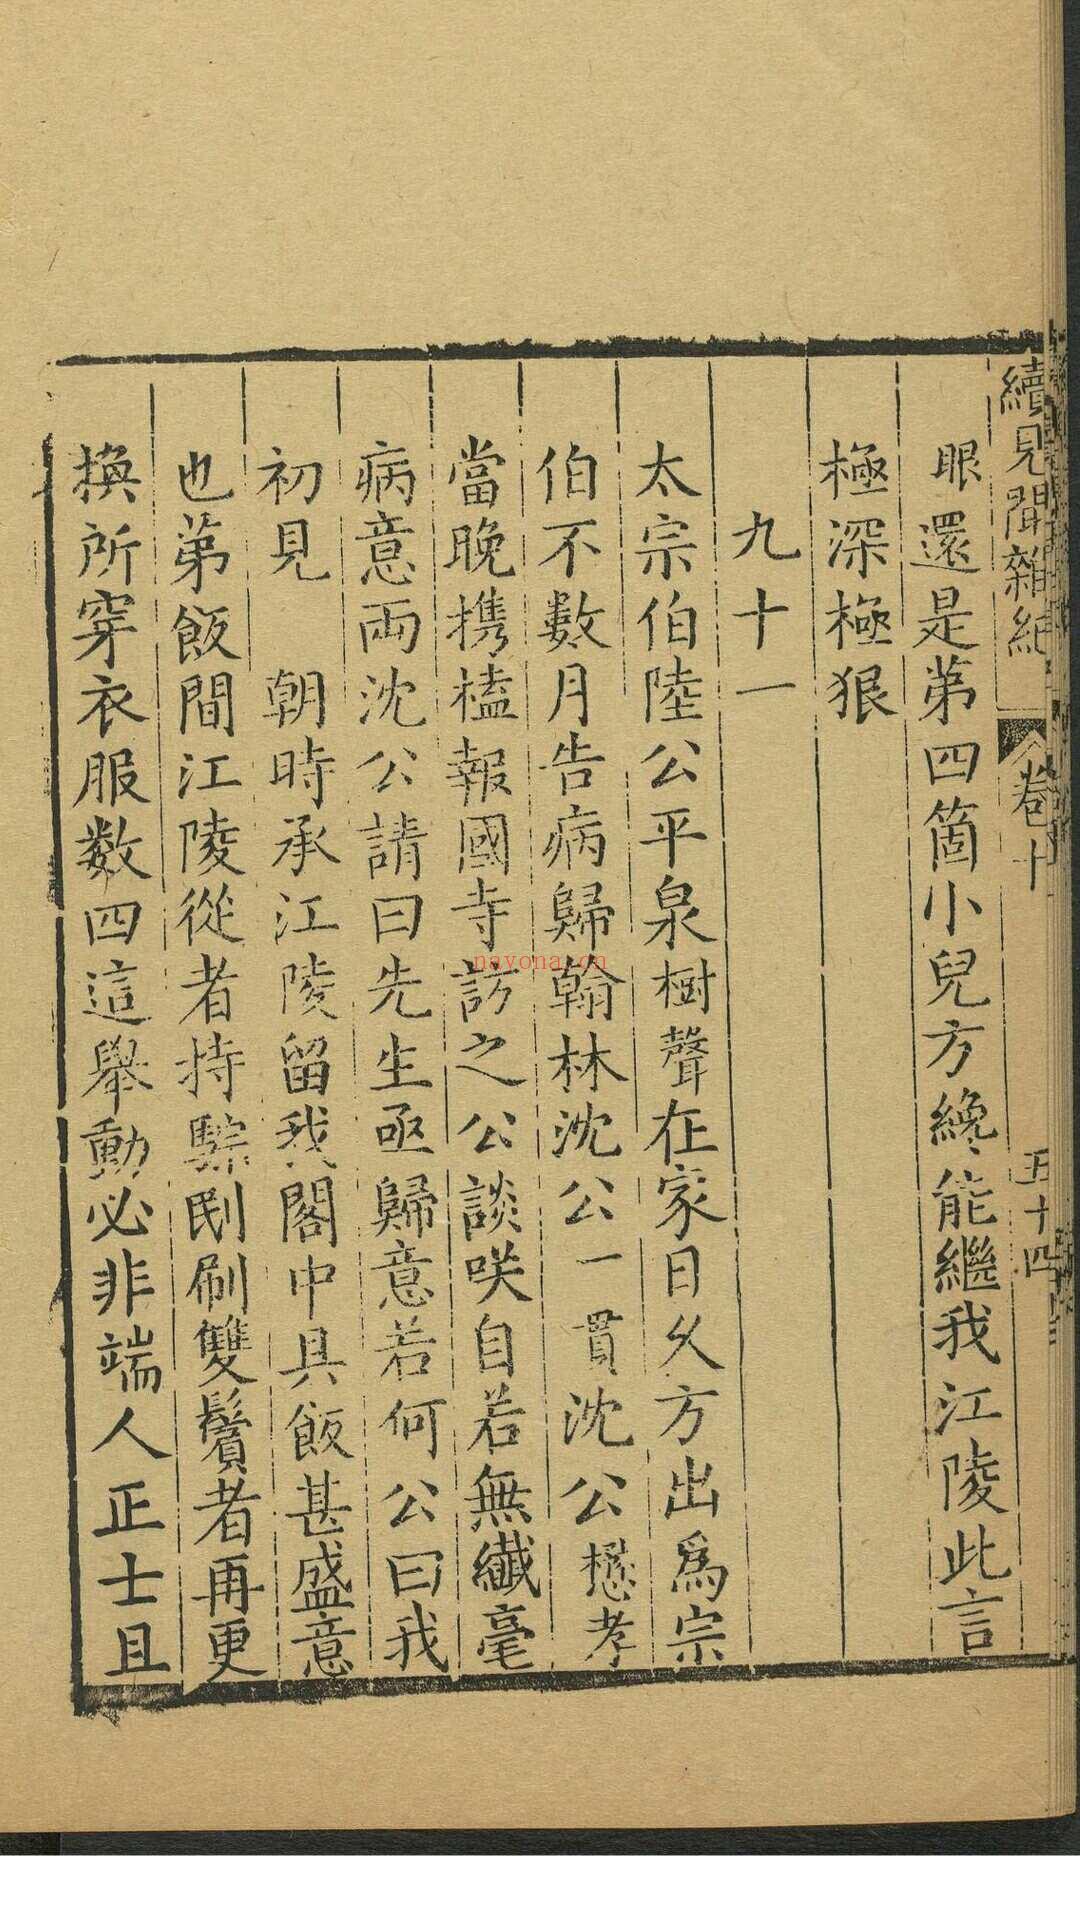 續見聞雜紀 卷十 五十四
眼還是第四箇小兒方纔能繼我江陵此言
極深極狠
九十一
太宗伯陸公平泉樹聲在家日久方出爲宗
伯不數月告病歸翰林沈公一貫沈公懋孝
當晚携榼報國寺訪之公談咲自若無纖毫
病意兩沈公請曰先生亟歸意若何公曰我
初見 朝時承江陵留我閣中具飯甚盛意
也第飯間江陵從者持鬃刷刷雙鬢者再更
換所穿衣服数四這舉動必非端人正士且
nayona.cn